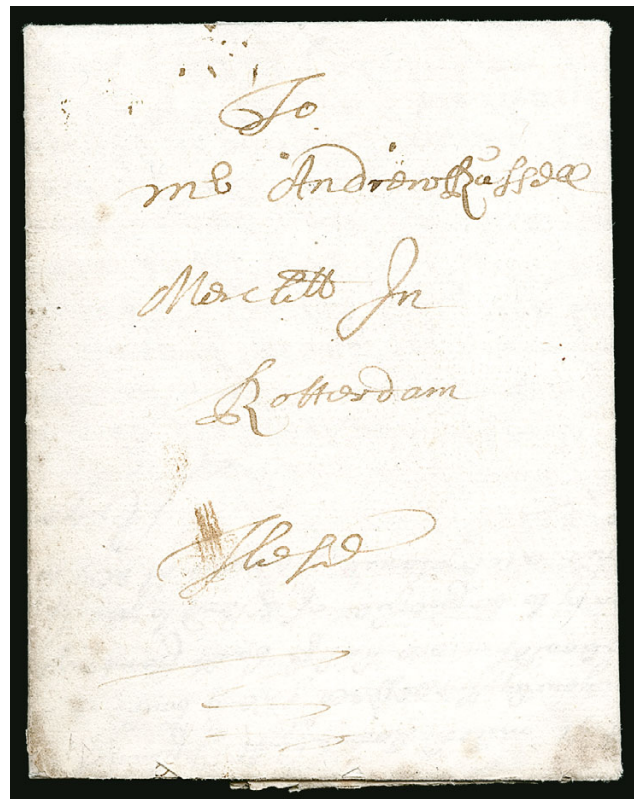 To
Mr Andrew Russell
Merctt In
Rotterdam
These